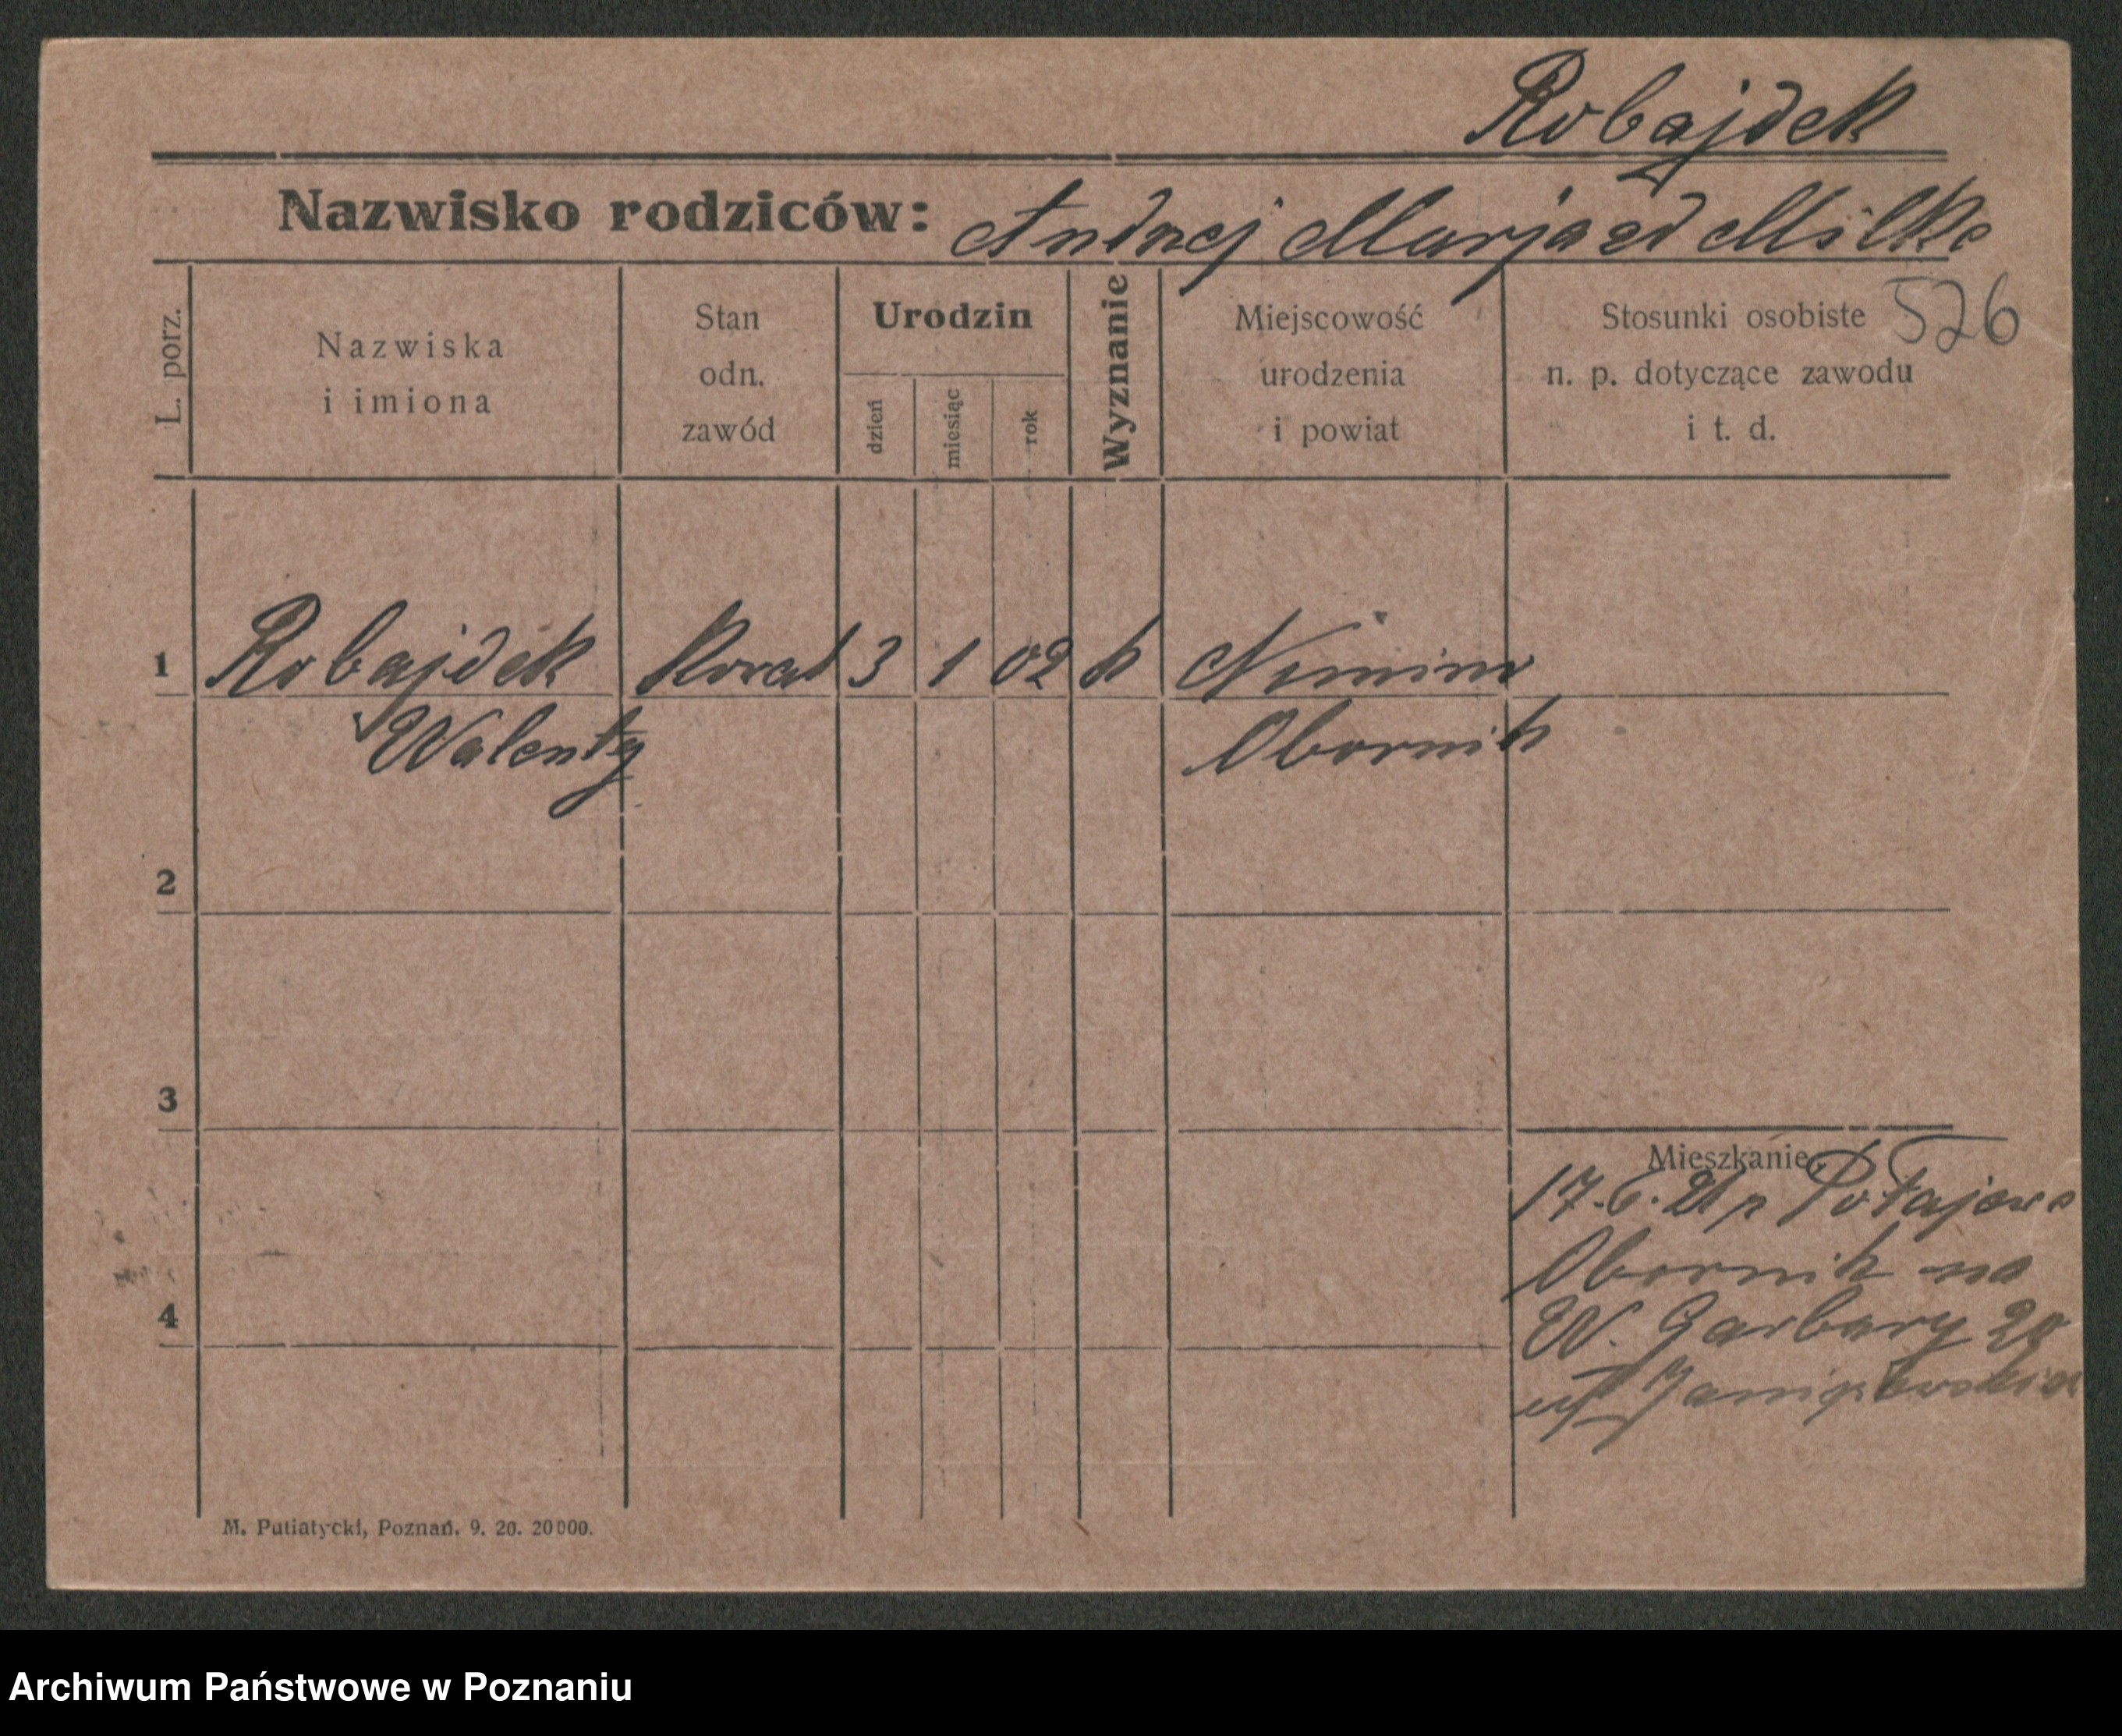 Robajdek
Nazwisko rodziców: Andrzej Marja zd Milke
526
L. porz.
Nazwiska
i imiona
Stan
odn.
zawód
Urodzin
dzień
miesiąc
rok
Wyznanie
Miejscowość
urodzenia
i powiat
Stosunki osobiste
n. p. dotyczące zawodu
i t. d.
1 Robajdek Kowal 3 1 02 k
Walenty Obornik
2
3
4
Mieszkanie
17. 6. 21 z Połajewo
Obornik na
W. Garbary 20
M. Putiatycki, Poznań. 9. 20. 20000.
Archiwum Państwowe w Poznaniu